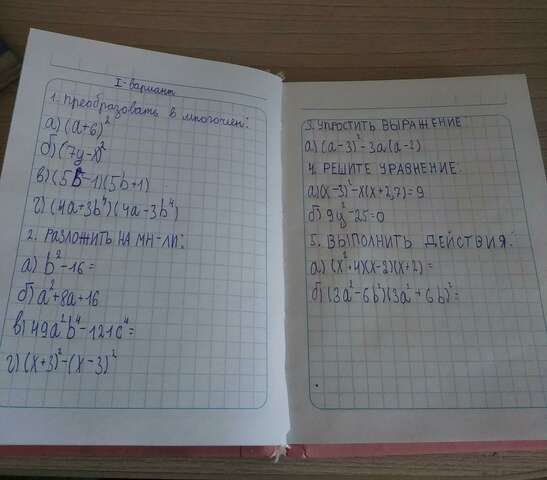 I-вариант
1. Преобразовать в многочлен:
а) (a+6)²
б) (7y-x)²
в) (5b-1)(5b+1)
г) (4a+3b⁴)(4a-3b⁴)
2. РАЗЛОЖИТЬ НА МН-ЛИ:
а) b²-16=
б) a²+8a+16
в) 49a²b⁴-121c⁴=
г) (x+3)²-(x-3)²
3. УПРОСТИТЬ ВЫРАЖЕНИЕ
а) (a-3)²-3a(a-2)
4. РЕШИТЕ УРАВНЕНИЕ:
а) (x-3)²-x(x+2,7)=9
б) 9y²-25=0
5. ВЫПОЛНИТЬ ДЕЙСТВИЯ:
а) (x²+4)(x-2)(x+2)=
б) (3a²-6b²)(3a²+6b)²=